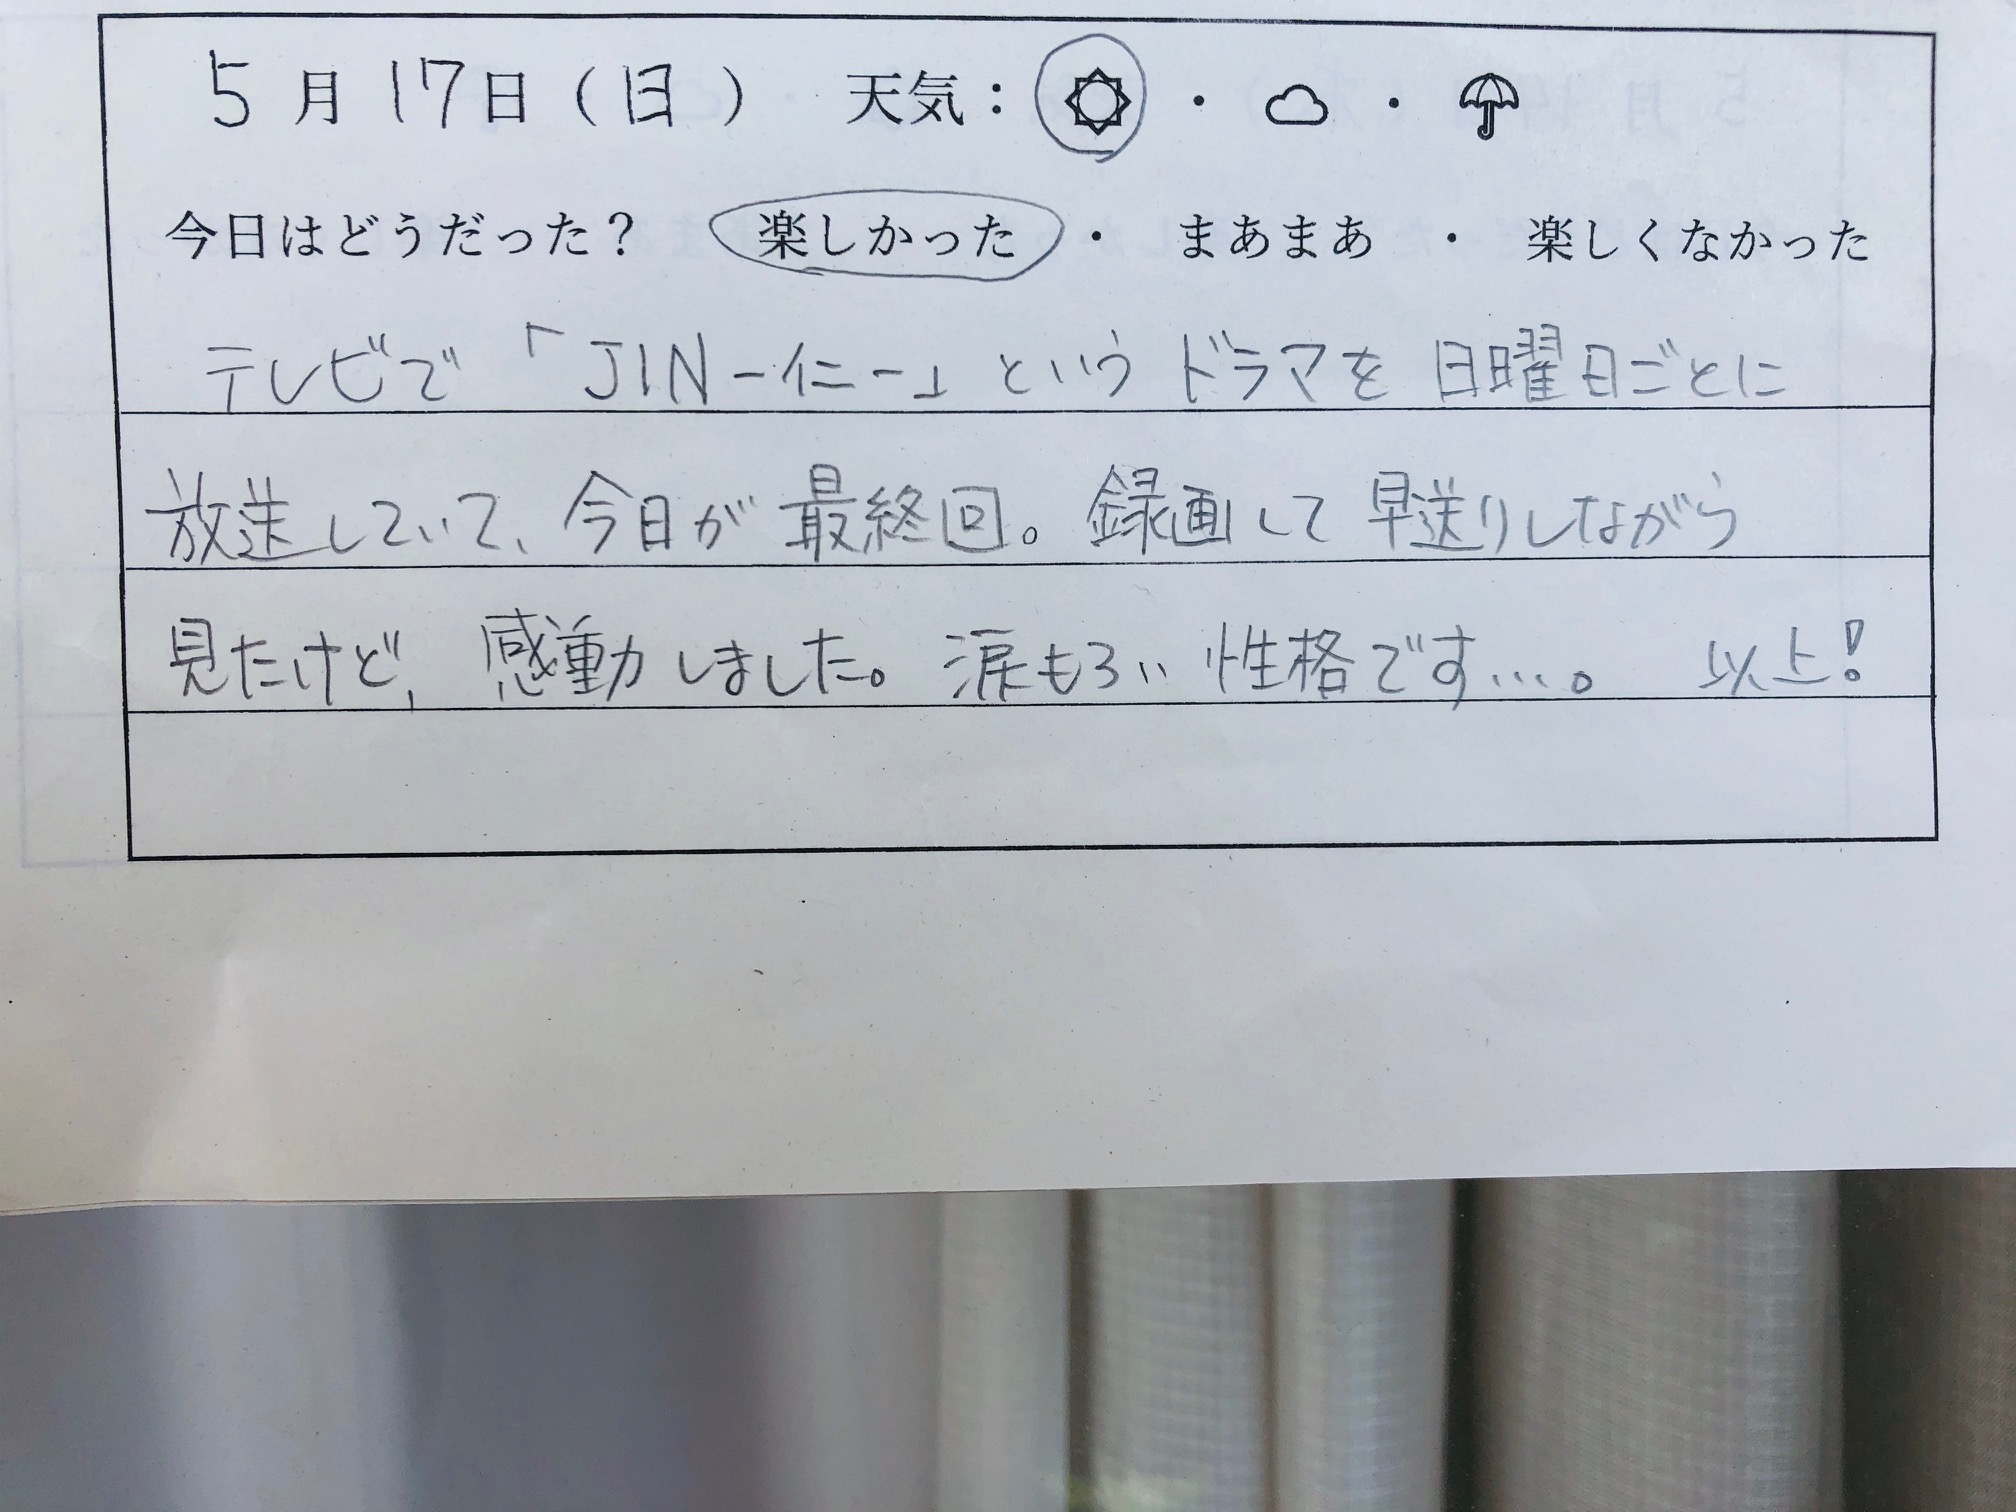 5月17日(日) 天気:☼・☁・☂
今日はどうだった? 楽しかった・まあまあ・楽しくなかった
テレビで「JIN-仁-」というドラマを日曜日ごとに
放送していて、今日が最終回。録画して早送りしながら
見たけど、感動しました。涙もろい性格です…。 以上!